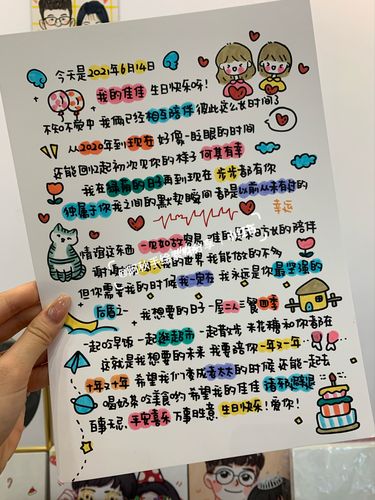 今天是2021年6月14日
我的佳佳 生日快乐呀!
不知不觉中 我俩已经相互陪伴 彼此这么长时间了
从2020年到现在 好像一眨眼的时间
还能回忆起初次见你的样子 何其有幸
我在 的日子再到现在 步步都有你
独属于你我之间的默契瞬间 都是以前从未有过的
幸运
情谊这东西 一见如故容易 难的是来日方长的陪伴
谢谢 的世界 我能做的不多
但你需要我的时候 我一定在 我永远是你最坚强的
后盾~ 我想要的日子 一屋二人三餐四季
一起吃早饭 一起逛超市 一起散步 米花糖和你都在
这就是我想要的未来 我要陪你一年又一年
十年又十年 希望我们变成老太太的时候 还能一起去
喝奶茶 吃美食哟 希望我的佳佳 诸邪避退
百事无忌 平安喜乐 万事胜意 生日快乐! 爱你!